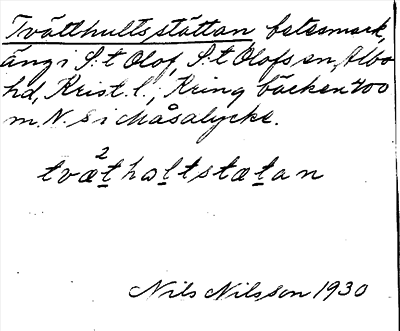 Tvätthultsstättan betesmark,
äng i S:t Olof, S:t Olofs sn, Albo
hd, Krist. l., Kring bäcken 400
m. N. S i Måsalycke.
tvæ²t̠hol̠tstæt̠an
Nils Nilsson 1930